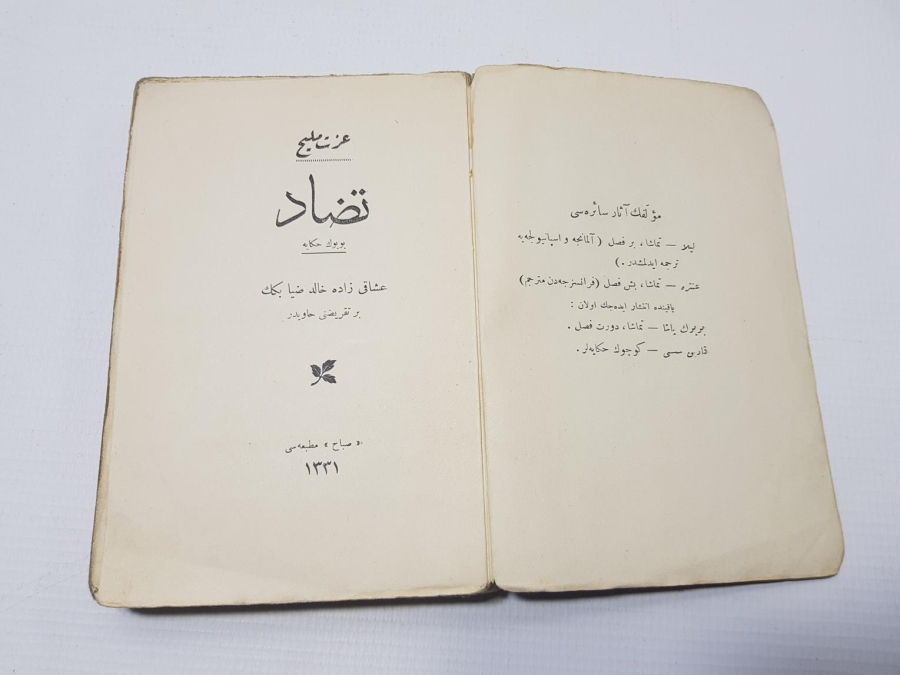 مؤلفك آثار سائره‌سی
لیلا — تماشا، بر فصل (آلمانجه و اسپانیولجه‌یه
ترجمه ایدلمشدر.)
عنتره — تماشا، بش فصل (فرانسزجه‌دن مترجم)
یاقینده انتشار ایده‌جك اولان:
بویوك پاشا — تماشا، دورت فصل.
قادین سسی — کوچوك حکایه‌لر.
عزت ملیح
تضاد
بویوك حکایه
عشاقی زاده خالد ضیا بكك
بر تقریضنی حاویدر
« صباح » مطبعه‌سی
١٣٣١